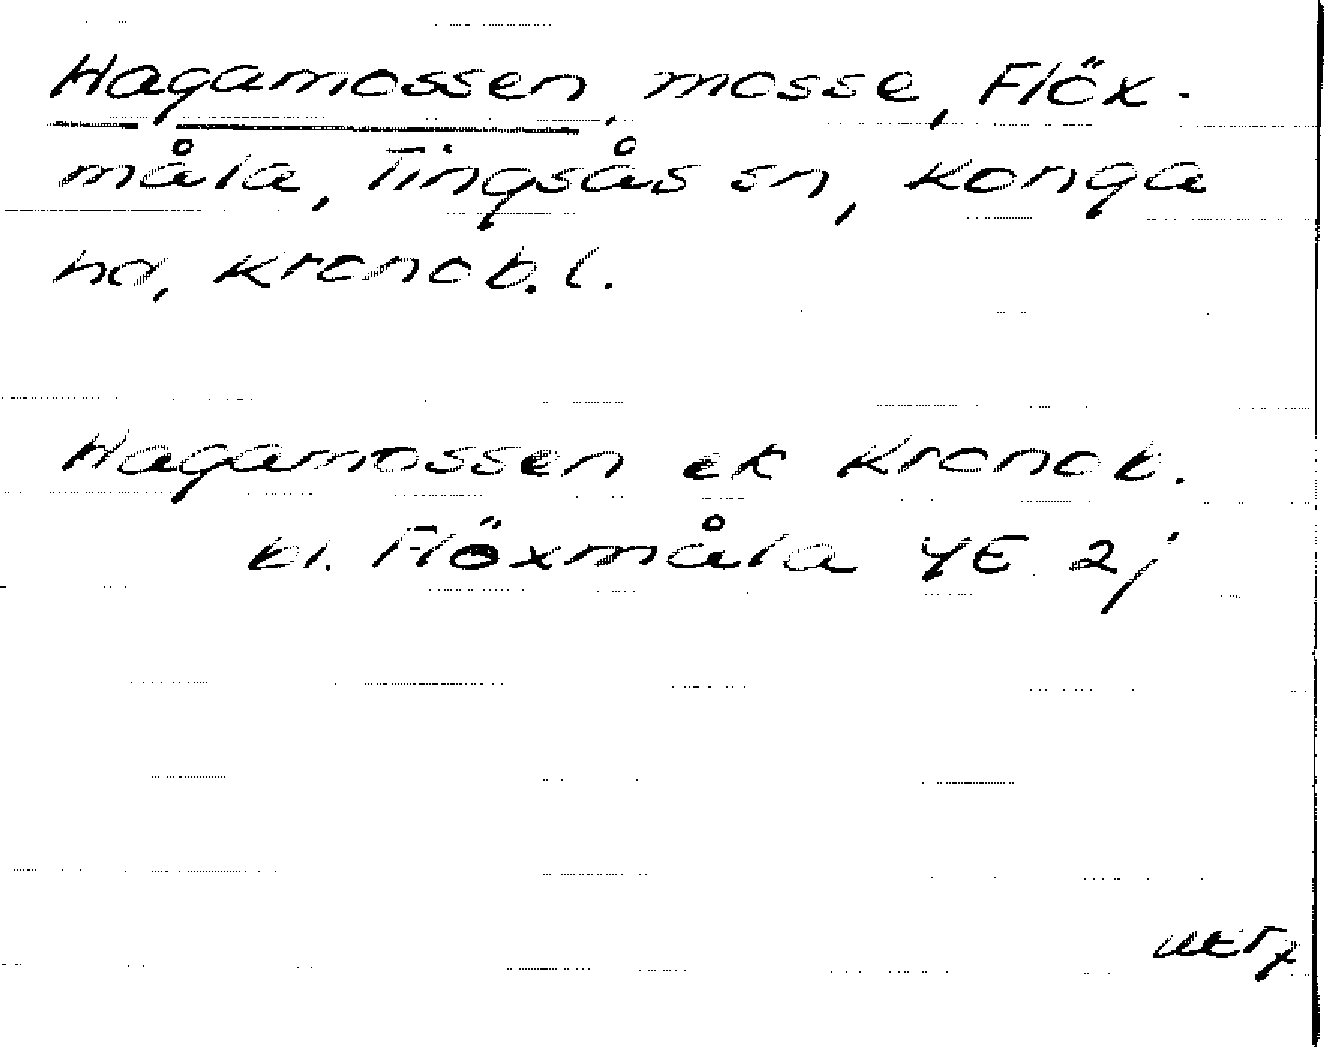 Hagamossen, mosse, Flöx-
måla, Tingsås sn, Konga
hd, Kronob. l.
Hagamossen ek Kronob.
bl. Flöxmåla 4E 2j